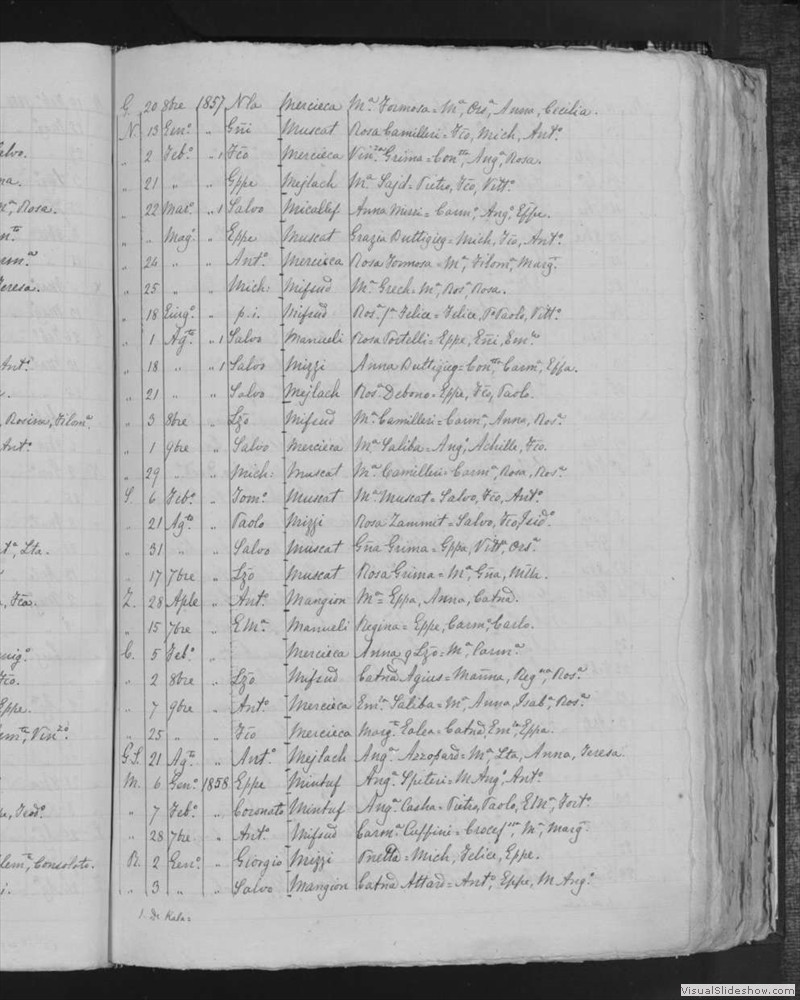 alvo.
na.
", Rosa.
Teresa.
Ant.°
Rosina, Filom.ª
Ant.°
Lta.
Eppe.
Consolato.
G. 20 8bre 1857 N̄la Mercieca M.ª Formosa = M.ª, Ors.ª, Anna, Cecilia.
N. 13 Gen.° " Gñi Muscat Rosa Camilleri = Fco, Mich, Ant.°
" 2 Feb.° " 1 Fco Mercieca Vin.za Grima = Con.tta, Ang.ª, Rosa.
" 21 " " Gppe Mejlach M.ª Sajd = Pietro, Fco, Vitt.°
" 22 Mar.° " 1 Salvo Micallef Anna = Carm.°, Ang.°, Effa.
" " Mag.° " Eppe Muscat Grazia Buttigieg = Mich, Fco, Ant.°
" 24 " " Ant.° Mercieca Rosa Formosa = M.ª, Filom.ª, Marg.ª
" 25 " " Mich: Mifsud M.ª Grech = M.ª, Ros.ª, Rosa.
" 18 Giug.° " p.i. Mifsud Ros.ª Felice = Felice, Paolo, Vitt.°
" 1 Ag.to " 1 Salvo Manueli Rosa Portelli = Eppe, Gñi, Em.le
" 18 " " 1 Salvo Mizzi Anna Buttigieg = Con.tta, Carm.ª, Effa.
" 21 " " Salvo Mejlach Ros.ª Debono = Eppe, Fco, Paolo.
" 3 8bre " Lzo Mifsud M.ª Camilleri = Carm.ª, Anna, Ros.ª
" 1 9bre " Salvo Mercieca M.ª Saliba = Ang.°, Achille, Fco.
" 29 " " Mich: Muscat M.ª Camilleri = Carm.ª, Rosa, Ros.ª
S. 6 Feb.° " Tom.° Muscat M.ª Muscat = Salvo, Fco, Ant.°
" 21 Ag.to " Paolo Mizzi Rosa Zammit = Salvo, Fco, Isid.°
" 31 " " Salvo Muscat Gña Grima = Gppa, Vitt.ª, Ors.ª
" 17 7bre " Lzo Muscat Rosa Grima = M.ª, Gña,
Z. 28 Aple " Ant.° Mangion M.ª = Eppa, Anna, Catnā.
" 15 7bre " Em.le Manueli Regina = Eppe, Carm.°, Carlo.
C. 5 Feb.° " Mercieca Anna q Lzo = M.ª, Carm.ª
" 2 8bre " Lzo Mifsud Catnā Agius = Marīna, Reg.na, Ros.ª
" 7 9bre " Ant.° Mercieca Em.la Saliba = M.ª, Anna, Isab.ª, Ros.ª
" 25 " " Fco Mercieca Marg.ª Ealea = Catnā, Em.la, Eppa.
G.S. 21 Ag.to " Ant.° Mejlach Ang.ª Azzopard = M.ª, Lta, Anna, Teresa.
M. 6 Gen.° 1858 Eppe Mintuf Ang.ª Spiteri = M. Ang.°, Ant.°
" 7 Feb.° " Coronato Mintuf Ang.ª Casha = Pietro, Paolo, Em.le, Fort.°
" 28 7bre " Ant.° Mifsud Carm.ª Caffini = Crocef.sa, M.ª, Marg.ª
R. 2 Gen.° " Giorgio Mizzi = Mich, Felice, Eppe.
" 3 " " Salvo Mangion Catnā Attard = Ant.°, Eppe, M. Ang.°
1. De Kala =
VisualSlideshow.com